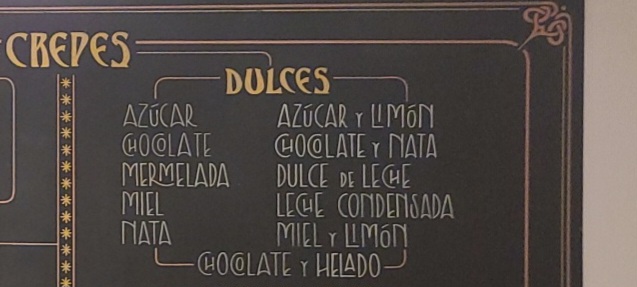 CREPES
DULCES
AZÚCAR
CHOCOLATE
MERMELADA
MIEL
NATA
AZÚCAR Y LIMÓN
CHOCOLATE Y NATA
DULCE DE LECHE
LECHE CONDENSADA
MIEL Y LIMÓN
CHOCOLATE Y HELADO